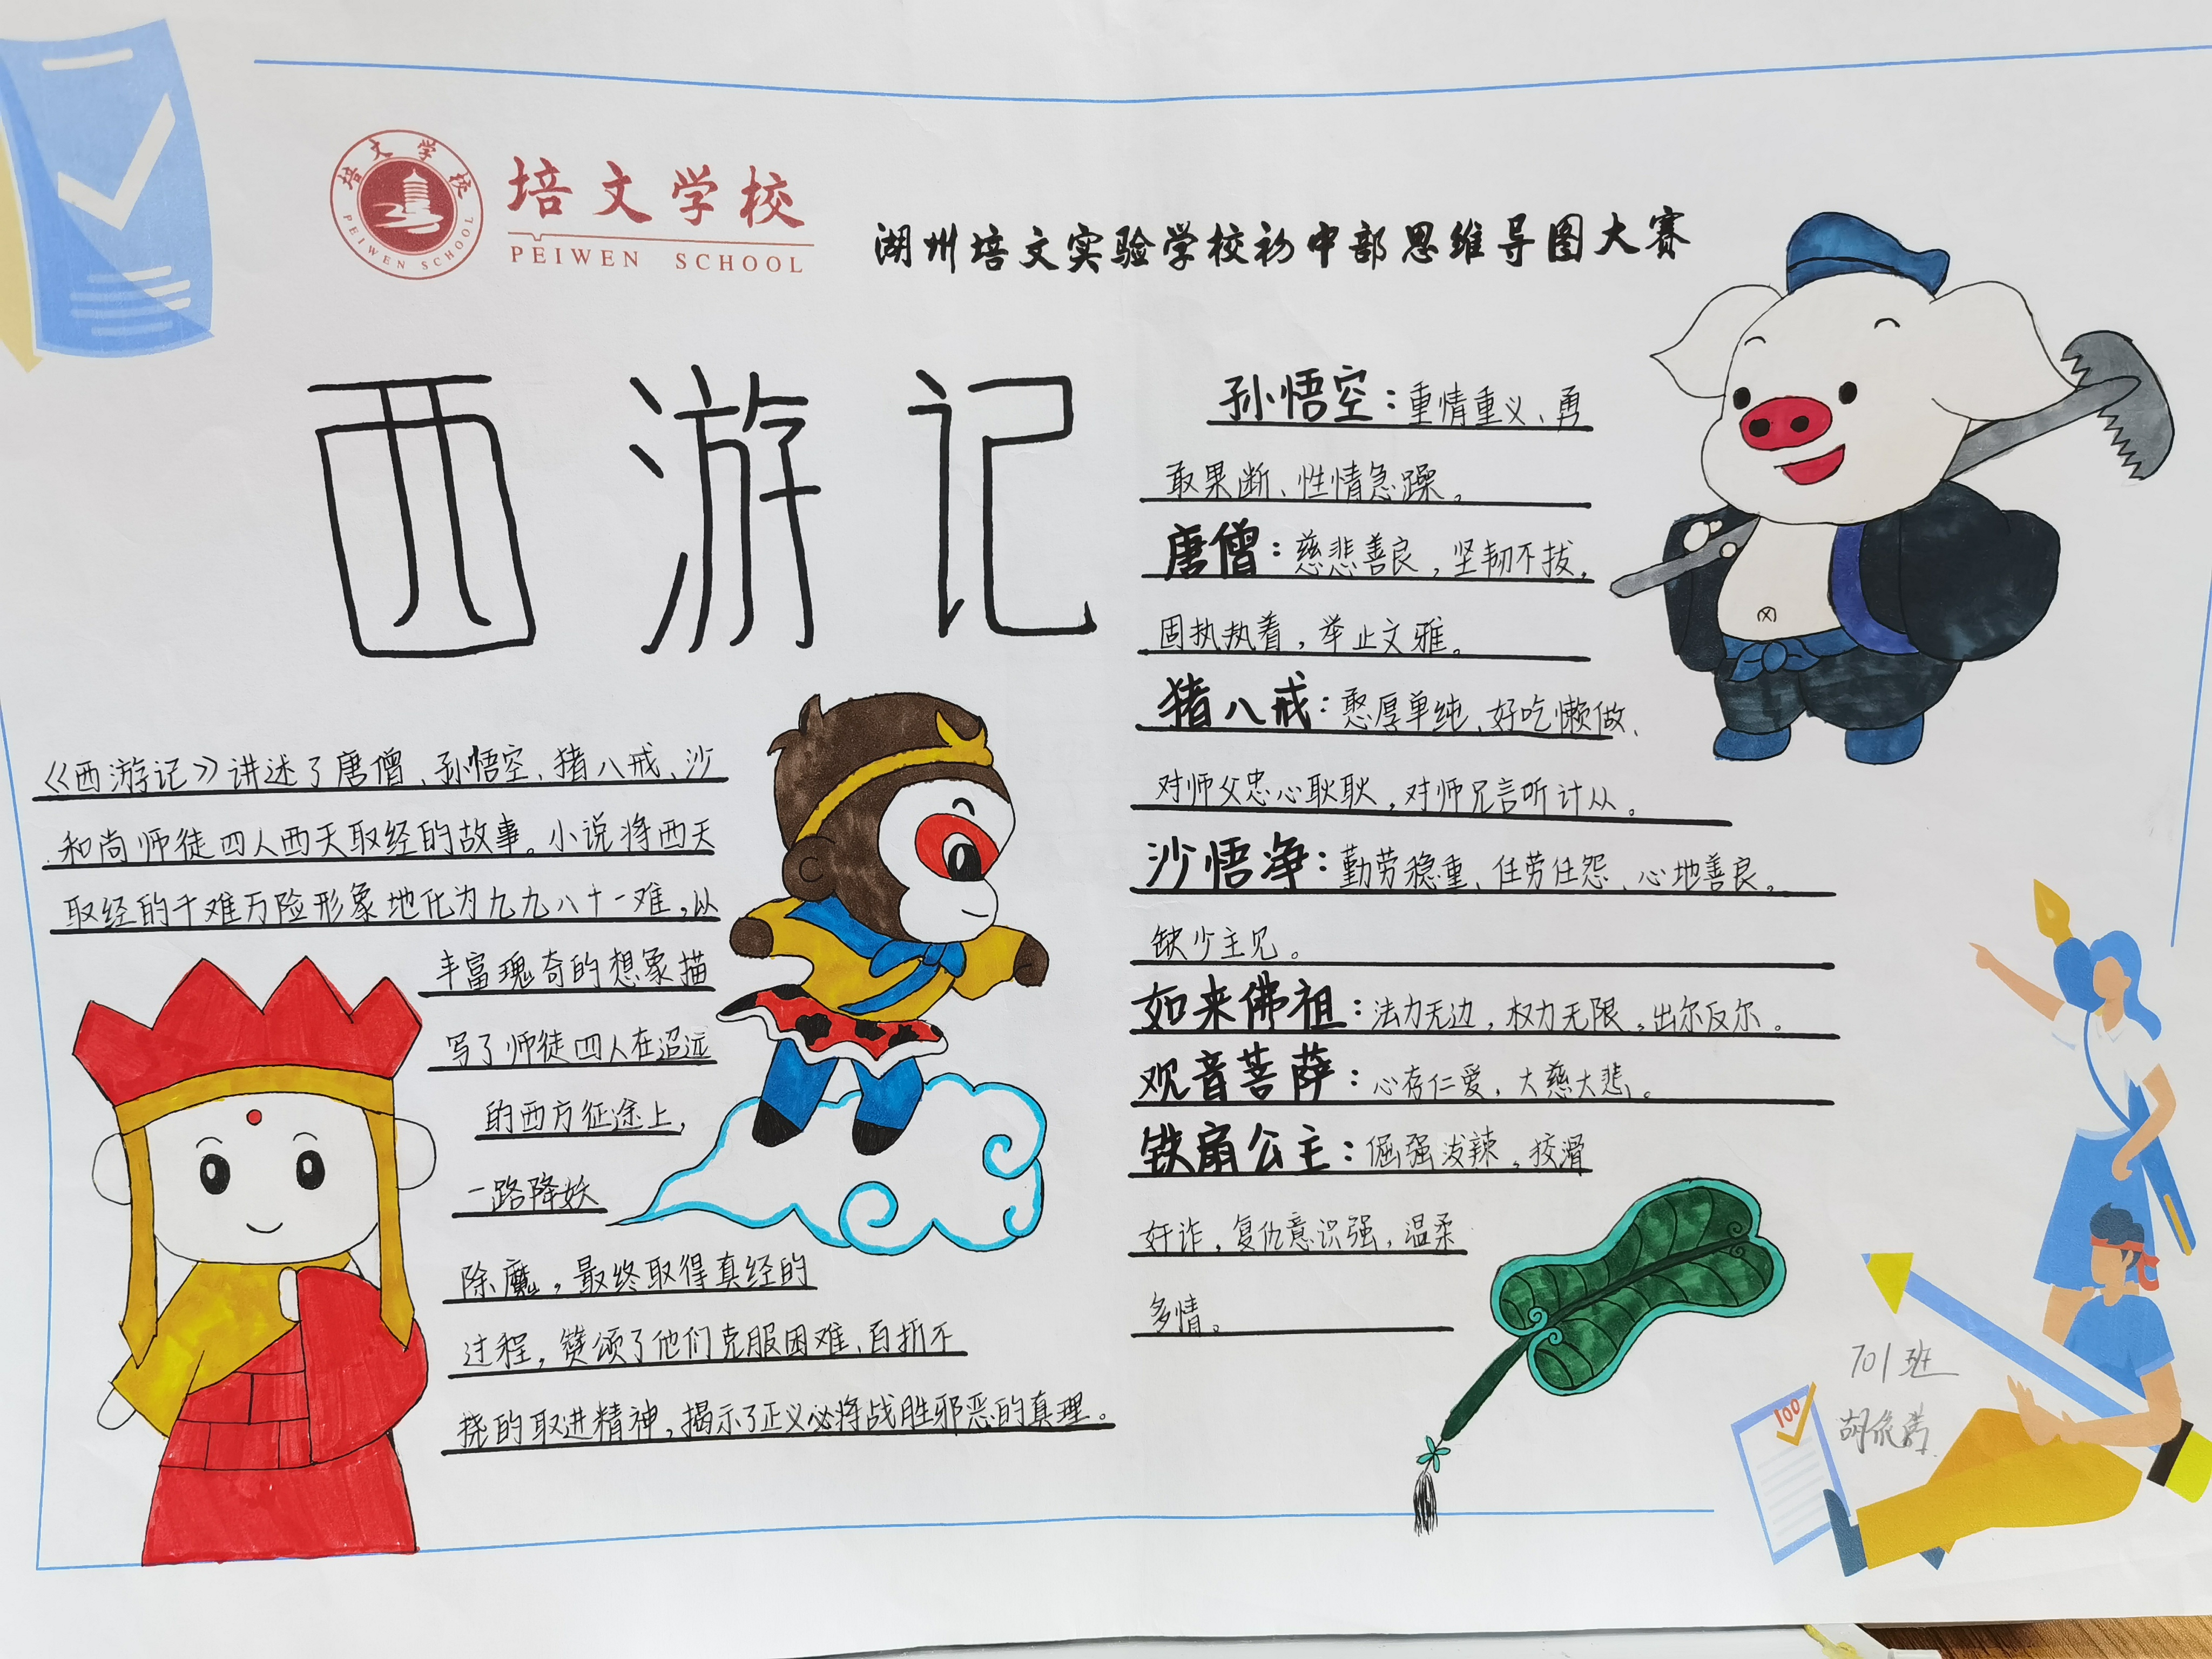 培文学校
PEIWEN SCHOOL
培文学校
PEIWEN SCHOOL
湖州培文实验学校初中部思维导图大赛
西游记
《西游记》讲述了唐僧、孙悟空、猪八戒、沙
和尚师徒四人西天取经的故事。小说将西天
取经的千难万险形象地化为九九八十一难,以
丰富瑰奇的想象描
写了师徒四人在迢远
的西方征途上,
一路降妖
除魔,最终取得真经的
过程,赞颂了他们克服困难、百折不
挠的取进精神,揭示了正义必将战胜邪恶的真理。
孙悟空:重情重义、勇
敢果断、性情急躁。
唐僧:慈悲善良,坚韧不拔,
固执执着,举止文雅。
猪八戒:憨厚单纯、好吃懒做、
对师父忠心耿耿,对师兄言听计从。
沙悟净:勤劳稳重、任劳任怨、心地善良。
缺少主见。
如来佛祖:法力无边,权力无限,出尔反尔。
观音菩萨:心存仁爱,大慈大悲。
铁扇公主:倔强泼辣,狡滑
奸诈,复仇意识强,温柔
多情。
100
701班
胡